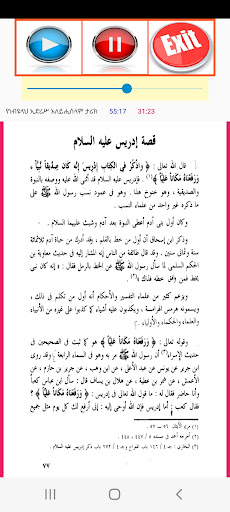 Exit
የነብዩላህ ኢድሪሥ አለይሒሰላም ታሪክ 55:17 31:23
قصة إدريس عليه السلام
قال الله تعالى : ﴿ وَاذْكُرْ فِي الْكِتَابِ إِدْرِيسَ إِنَّهُ كَانَ صِدِّيقاً نَبِيّاً ،
وَرَفَعْنَاهُ مَكَاناً عَلِيّاً ﴾(١) . فإدريس عليه السلام قد أثنى الله عليه ووصفه بالنبوة
والصديقية ، وهو خنوخ هذا . وهو في عمود نسب رسول الله ﷺ على
ما ذكره غير واحد من علماء النسب .
وكان أول بني آدم أعطي النبوة بعد آدم وشيث عليهما السلام .
وذكر ابن إسحاق أن أول من خط بالقلم ، وقد أدرك من حياة آدم ثلاثمائة
سنة وثماني سنين . وقد قال طائفة من الناس إنه المشار إليه في حديث معاوية بن
الحكم السلمي لما سأل رسول الله ﷺ عن الخط بالرمل فقال : « إنه كان نبي
يخط به فمن وافق خطه فذاك »(٢) .
ويزعم كثير من علماء التفسير والأحكام أنه أول من تكلم في ذلك ،
ويسمونه هرمس الهرامسة ، ويكذبون عليه أشياء كثيرة كما كذبوا على غيره من الأنبياء
والعلماء والحكماء والأولياء .
وقوله تعالى : ﴿ وَرَفَعْنَاهُ مَكَاناً عَلِيّاً ﴾ هو كما ثبت في الصحيحين في
حديث الإسراء(٣) أن رسول الله ﷺ مر به وهو في السماء الرابعة . وقد روى
ابن جرير عن يونس عن عبد الأعلى ، عن ابن وهب ، عن جرير بن حازم ، عن
الأعمش ، عن شمر بن عطية ، عن هلال بن يساف قال : سأل ابن عباس كعباً
وأنا حاضر فقال له : ما قول الله تعالى في إدريس ﴿ وَرَفَعْنَاهُ مَكَاناً عَلِيّاً ﴾ ؟
فقال كعب : أما إدريس فإن الله أوحى إليه : أني أرفع لك كل يوم مثل جميع
٧٧